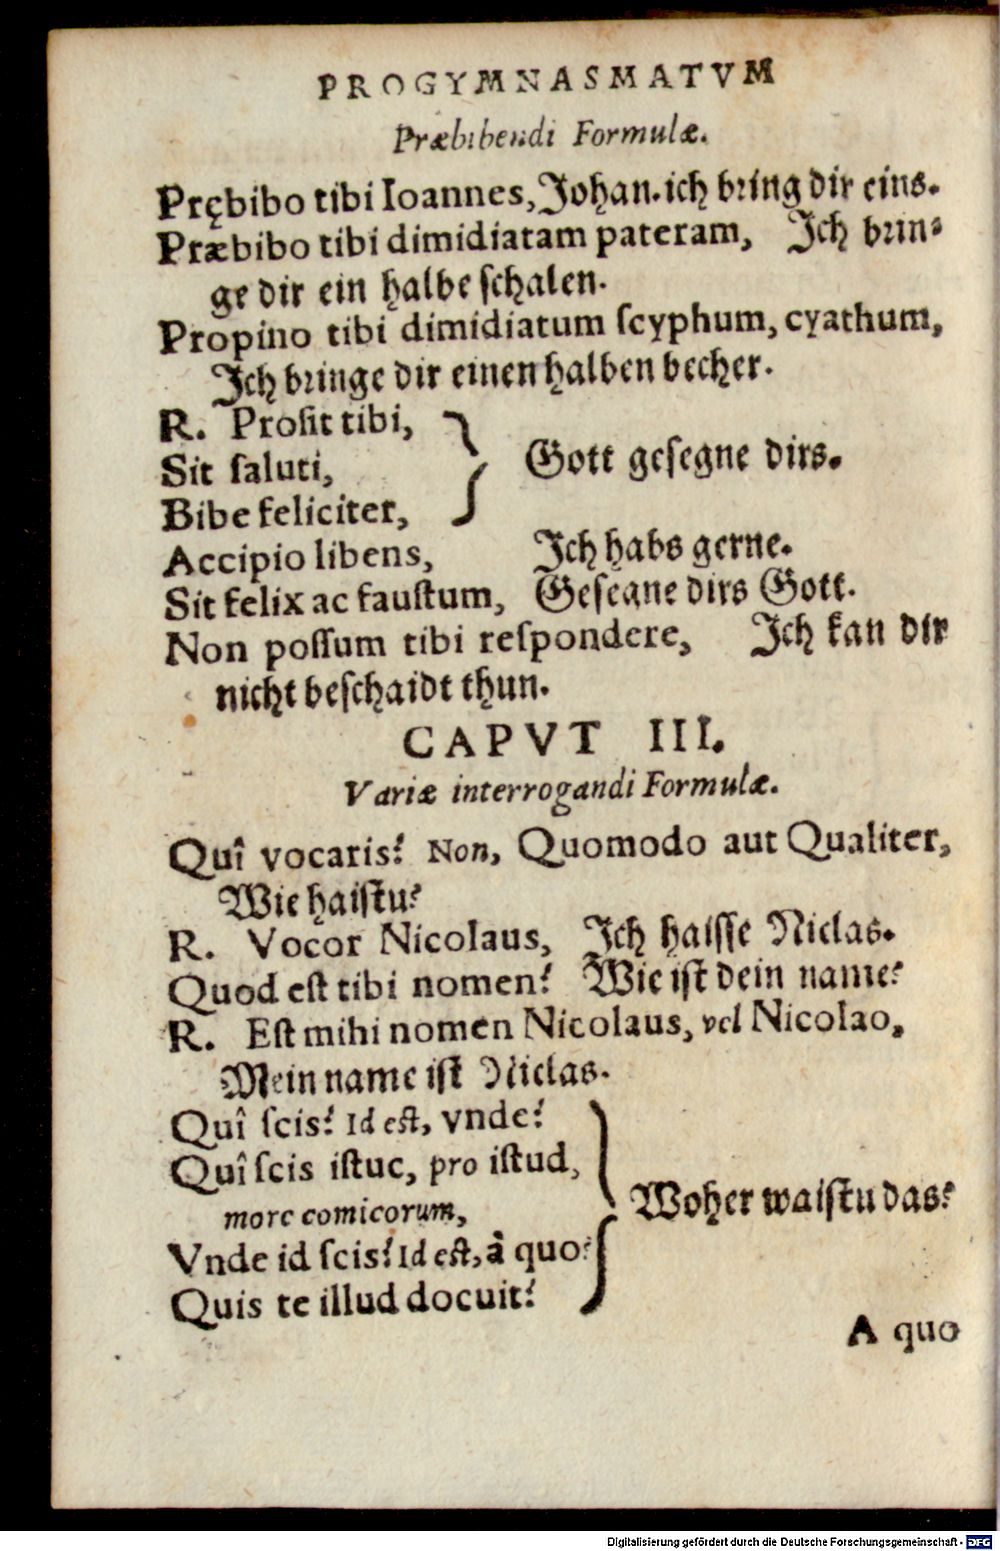 PROGYMNASMATVM
Præbibendi Formulæ.
Prębibo tibi Ioannes, Johan. ich bring dir eins.
Præbibo tibi dimidiatam pateram, Ich brin-
ge dir ein halbe schalen.
Propino tibi dimidiatum ſcyphum, cyathum,
Ich bringe dir einen halben becher.
R. Proſit tibi,
Sit ſaluti,
Bibe feliciter,
Gott geſegne dirs.
Accipio libens, Ich habs gerne.
Sit felix ac fauſtum, Geſegne dirs Gott.
Non poſſum tibi reſpondere, Ich kan dir
nicht beſchaidt thun.
CAPVT III.
Variæ interrogandi Formulæ.
Quî vocaris? Non, Quomodo aut Qualiter,
Wie haiſtu?
R. Vocor Nicolaus, Ich haiſſe Niclas.
Quod eſt tibi nomen? Wie iſt dein name?
R. Eſt mihi nomen Nicolaus, vel Nicolao,
Mein name iſt Niclas.
Quî ſcis? Id eſt, vnde?
Quî ſcis iſtuc, pro iſtud,
more comicorum,
Vnde id ſcis? Id eſt, à quo?
Quis te illud docuit?
Woher waiſtu das?
A quo
Digitalisierung gefördert durch die Deutsche Forschungsgemeinschaft - DFG